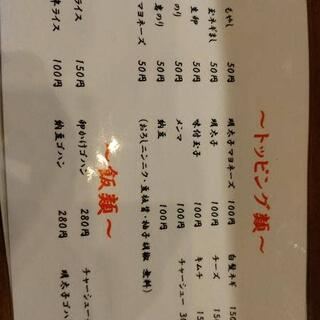 〜トッピング類〜
もやし 50円 明太子マヨネーズ 100円 白髪ネギ 150
玉ネギまし 50円 明太子 100円 チーズ 15
生卵 50円 味付玉子 100円 キムチ 15
のり 50円 メンマ 100円 チャーシュー 30
のり 50円 納豆 100円
マヨネーズ 50円 (おろしニンニク・豆板醤・柚子胡椒 無料)
〜飯類〜
ライス 150円 卵かけゴハン 280円 チャーシュー
ライス 100円 納豆ゴハン 280円 明太子ゴハ